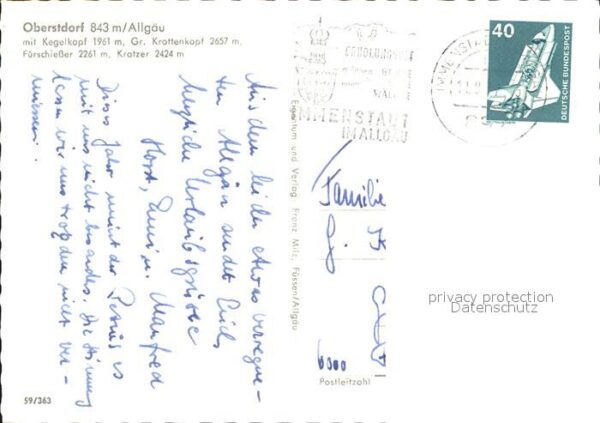 Oberstdorf 843 m/Allgäu
mit Kegelkopf 1961 m, Gr. Krottenkopf 2657 m,
Fürschießer 2261 m, Kratzer 2424 m
ERHOLUNGSORT
WÄLDER
IMMENSTADT
IM ALLGÄU
IMMENSTA
40
DEUTSCHE BUNDESPOST
Aus dem leider etwas verregne-
ten Allgäu sendet Euch
herzliche Urlaubsgrüsse
Horst, u. Manfred
Dieses Jahr meint der Petrus es
mit uns nicht besonders. Die Stimmung
lassen wir uns trotzdem nicht ver-
miesen.
Eigentum und Verlag Franz Milz, Füssen/Allgäu
Familie
6000
Postleitzahl
privacy protection
Datenschutz
59/363